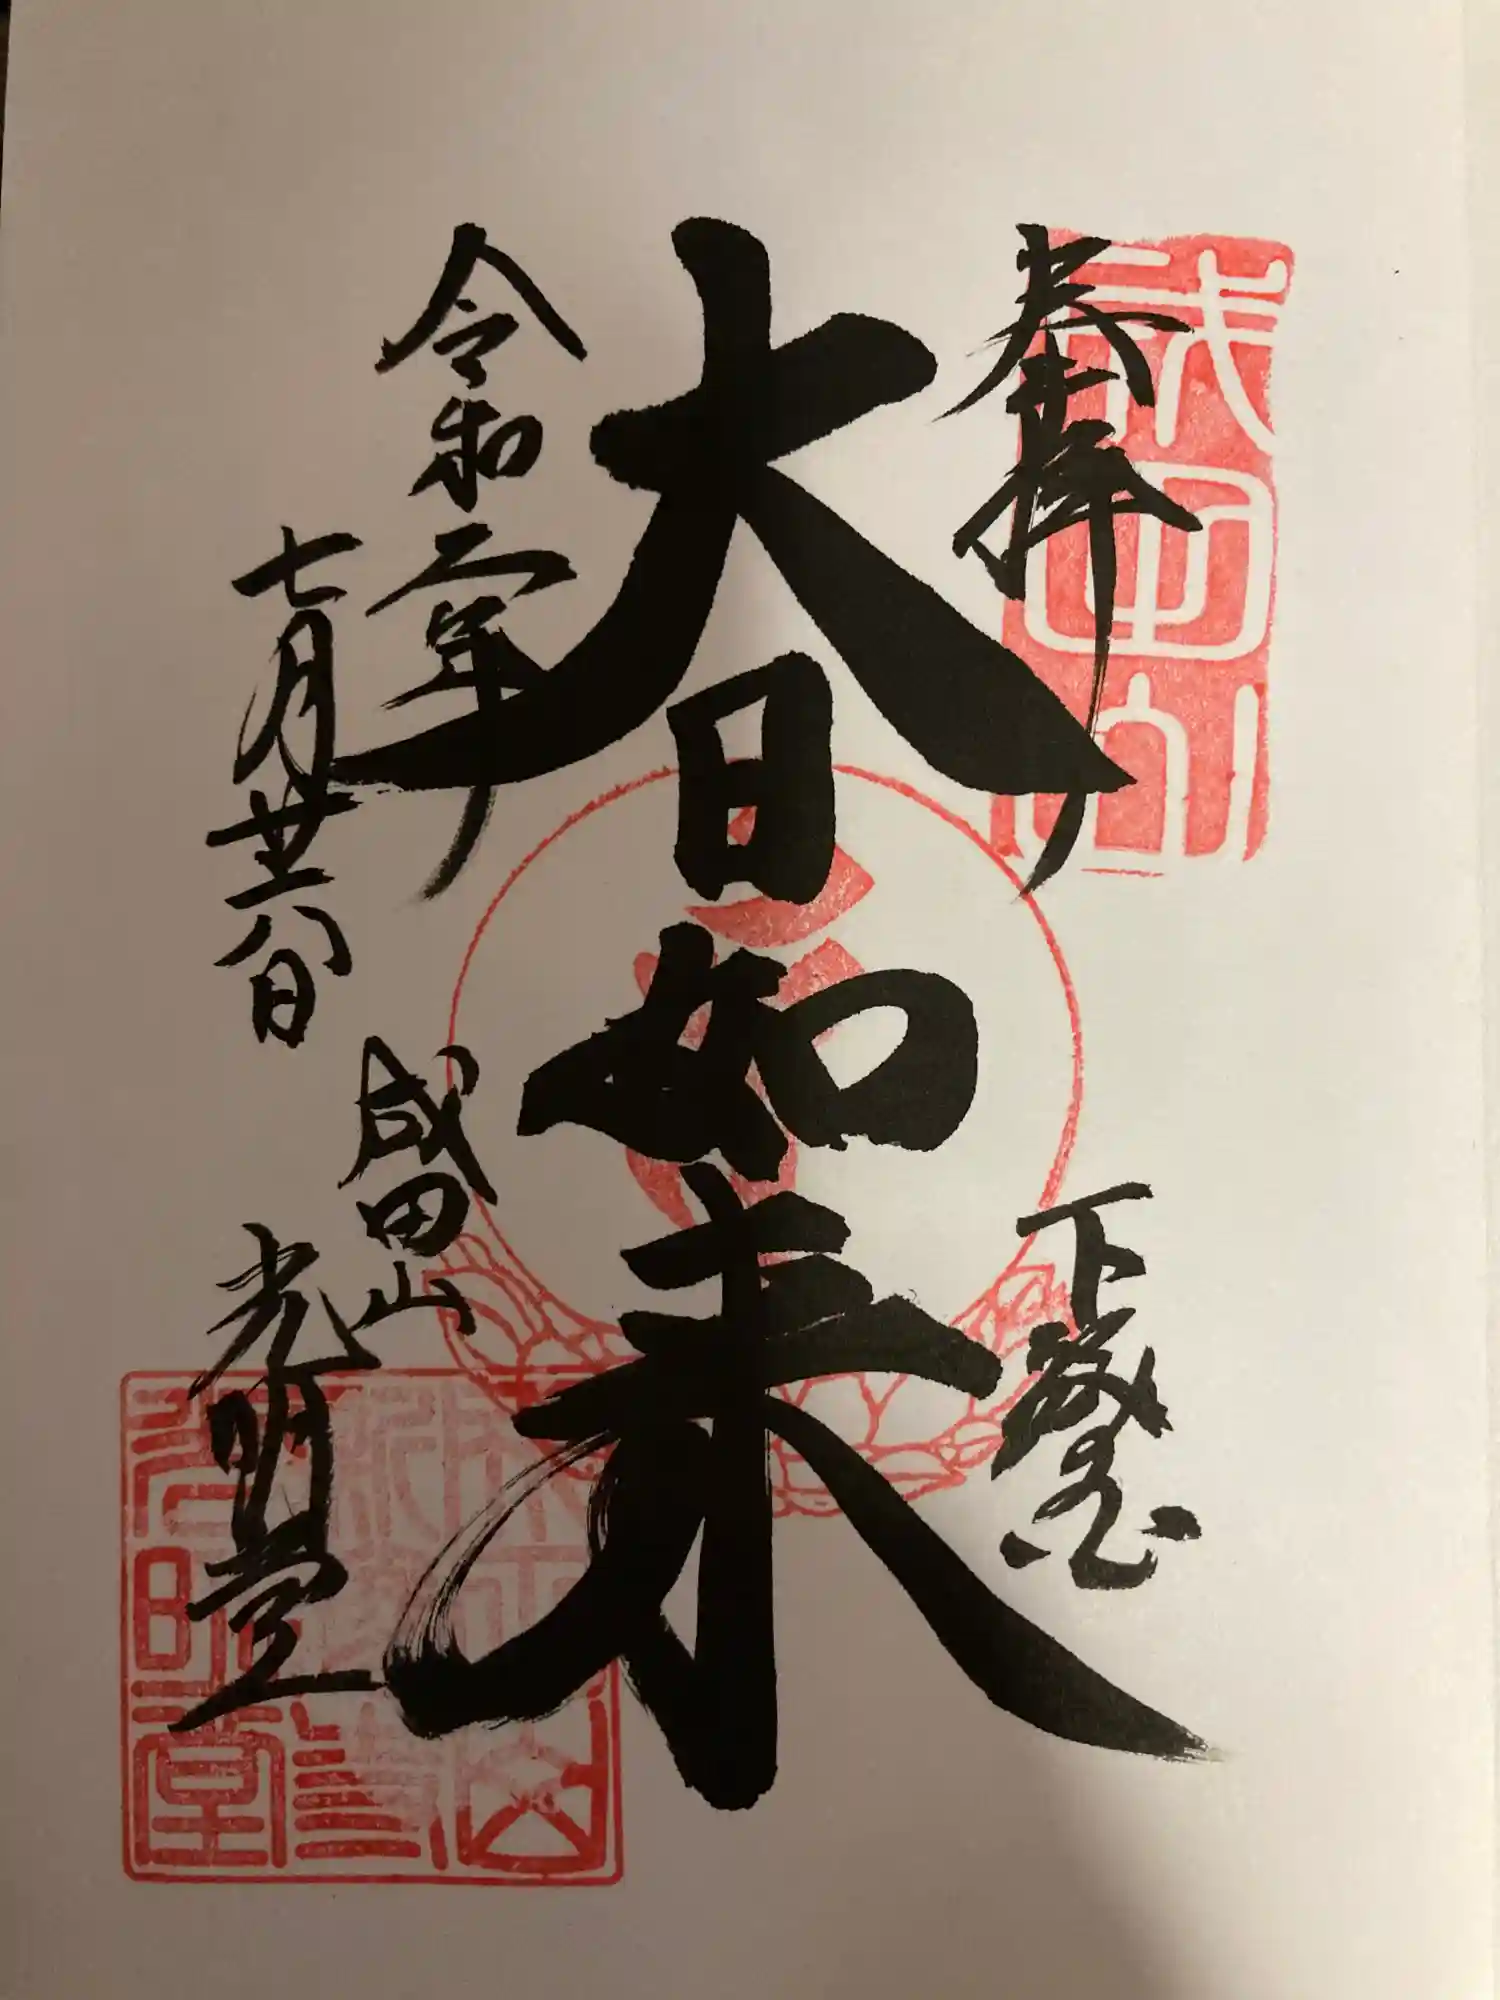 成田山
奉拝
下總
大日如来
令和二年
七月廿八日
成田山
光明堂
光明堂